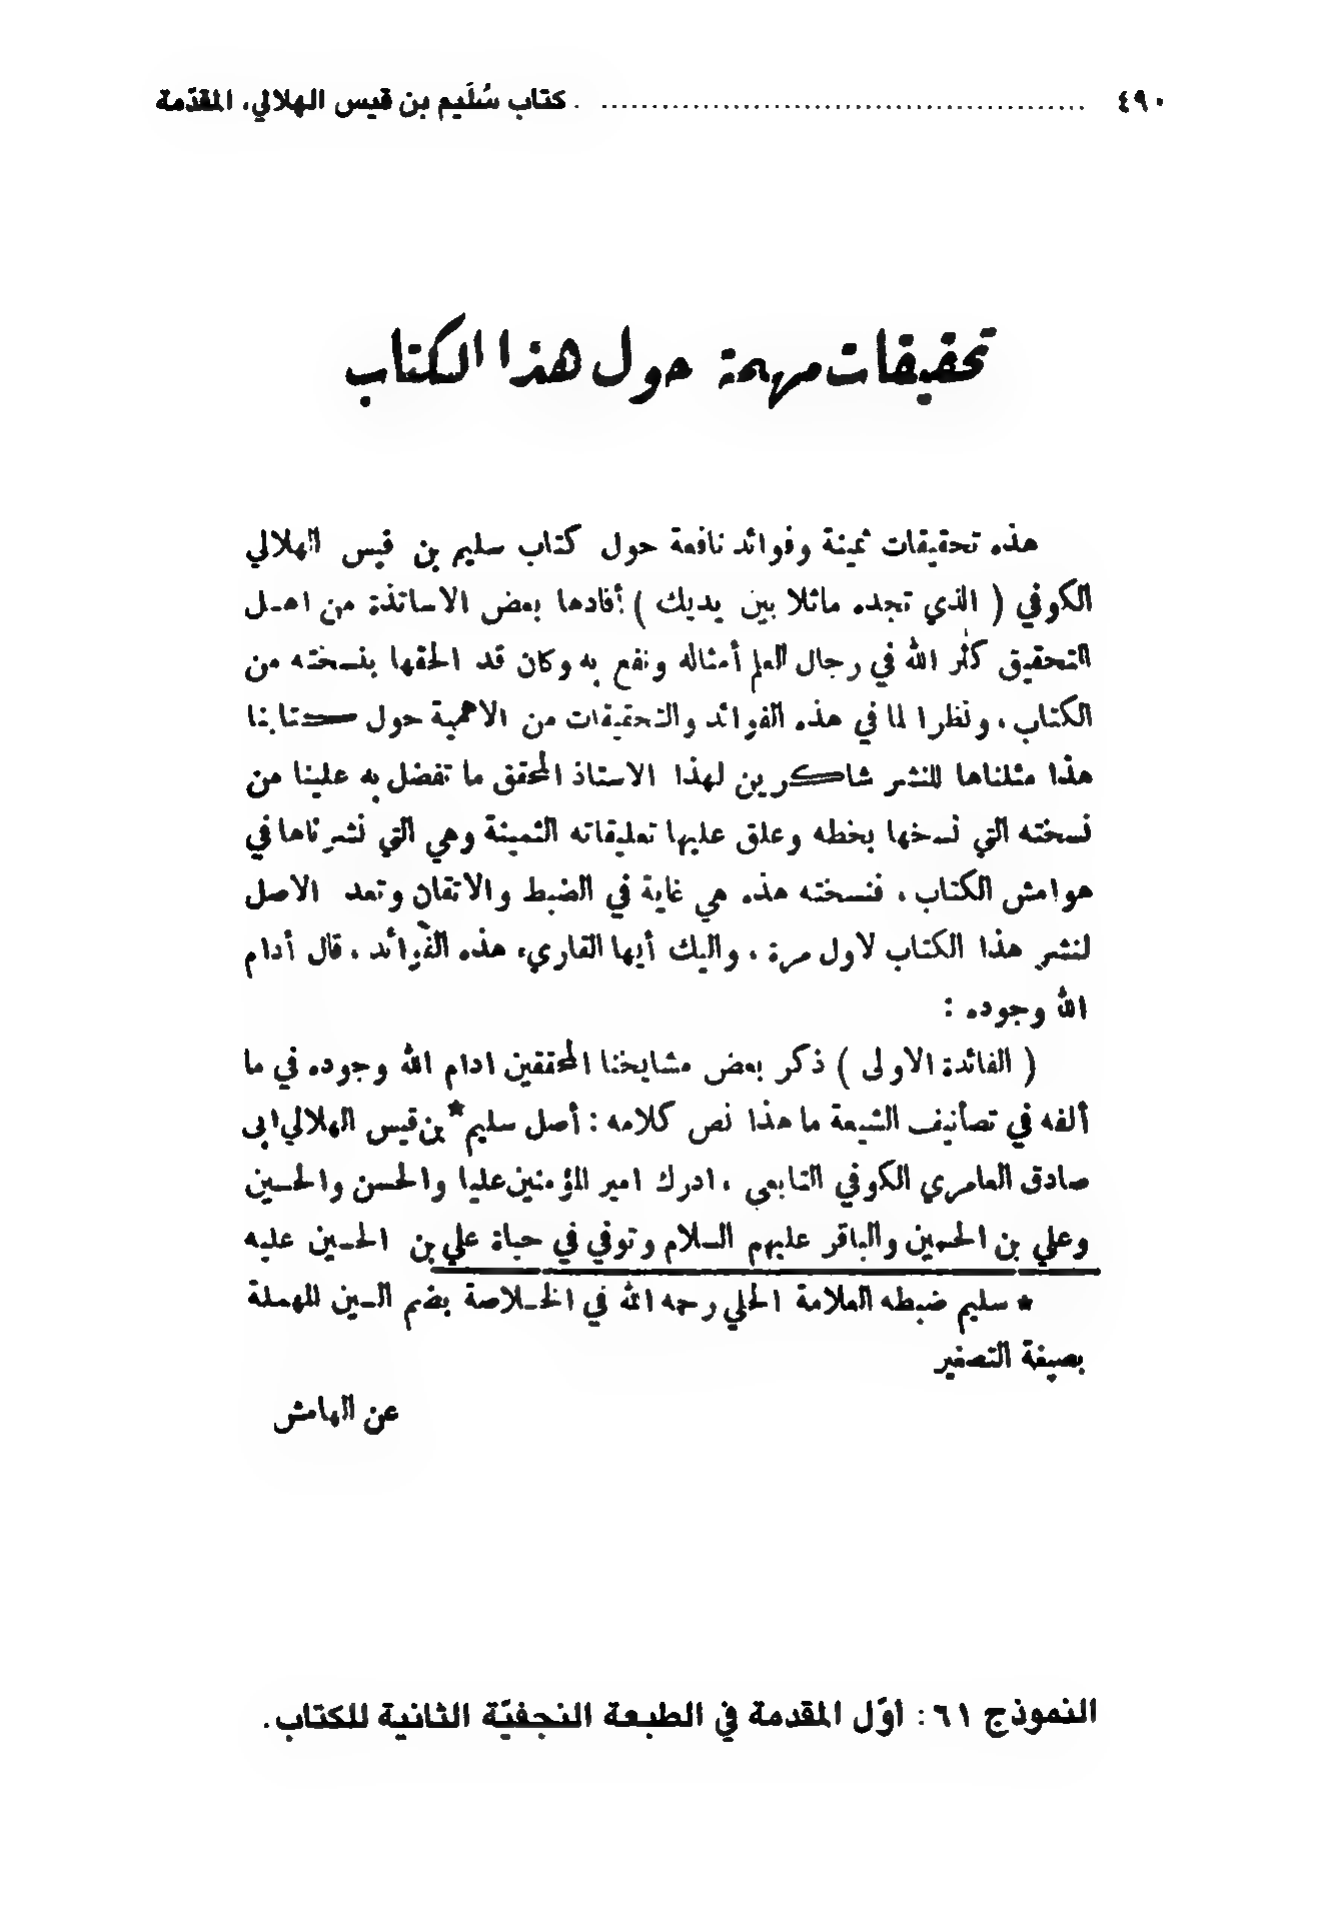 ٤٩٠ ........................................ كتاب سُلَيم بن قيس الهلالي، المقدّمة
تحقيقات مهمة حول هذا الكتاب
هذه تحقيقات ثمينة وفوائد نافعة حول كتاب سليم بن قيس الهلالي
الكوفي ( الذي تجده ماثلا بين يديك ) أفادها بعض الاساتذة من اهل
التحقيق كثر الله في رجال العلم أمثاله ونفع به وكان قد الحقها بنسخته من
الكتاب ، ونظرا لما في هذه الفوائد والتحقيقات من الاهمية حول كتابنا
هذا مثلناها للنشر شاكرين لهذا الاستاذ المحقق ما تفضل به علينا من
نسخته التي نسخها بخطه وعلق عليها تعليقاته الثمينة وهي التي نشرناها في
هوامش الكتاب ، فنسخته هذه هي غاية في الضبط والاتقان وتعد الاصل
لنشر هذا الكتاب لاول مرة ، واليك أيها القاريء هذه الفوائد ، قال أدام
الله وجوده :
( الفائدة الاولى ) ذكر بعض مشايخنا المحققين ادام الله وجوده في ما
ألفه في تصأنيف الشيعة ما هذا نص كلامه : أصل سليم * بن قيس الهلالي ابى
صادق العامري الكوفي التابعي ، ادرك امير المؤمنين عليا والحسن والحسين
وعلي بن الحسين والباقر عليهم السلام وتوفي في حياة علي بن الحسين عليه
* سليم ضبطه العلامة الحلي رحمه الله في الخلاصة بضم السين المهملة
بصيغة التصغير
عن الهامش
النموذج ٦١ : أوّل المقدمة في الطبعة النجفيّة الثانية للكتاب.